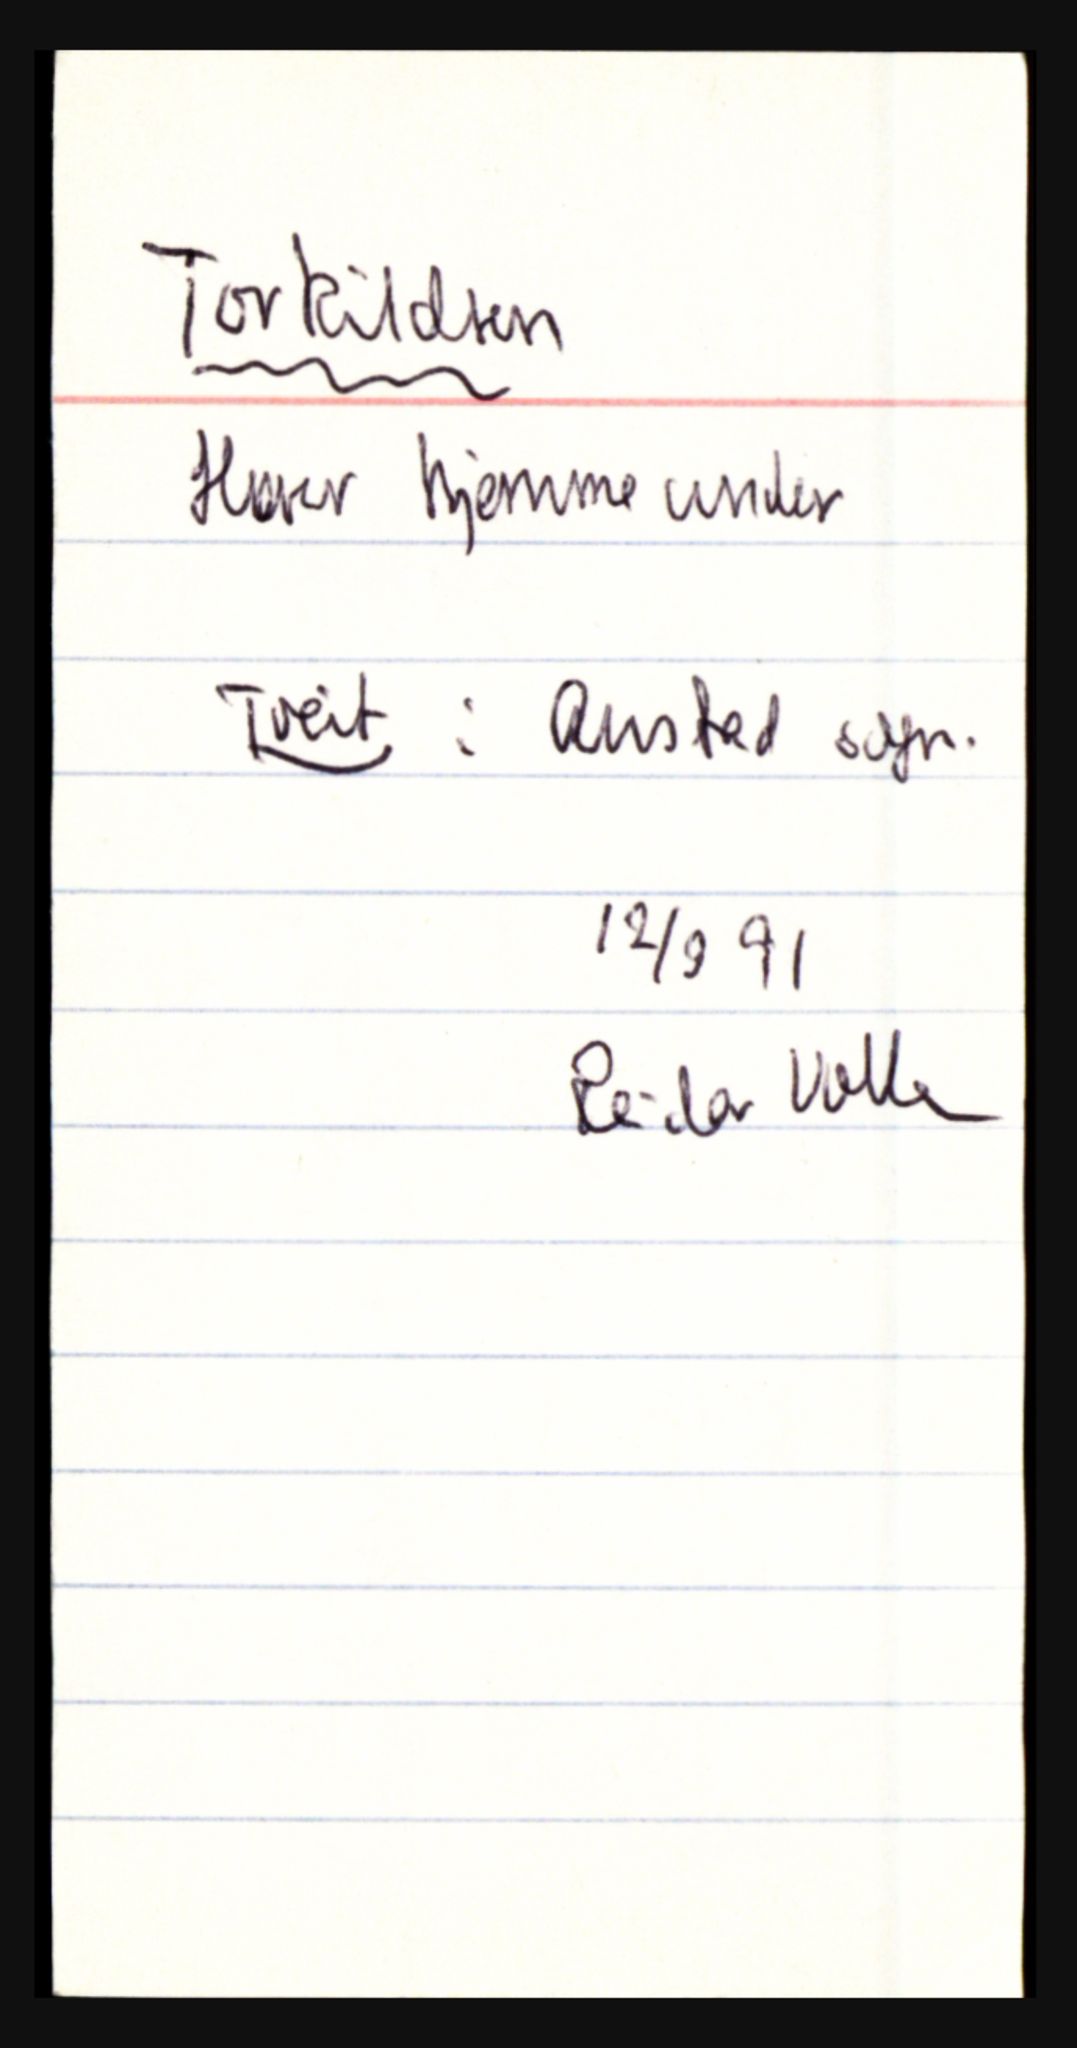 Torkildsen
Hører hjemme under
Tveit i Austad sogn.
12/9 91
Reidar Valle